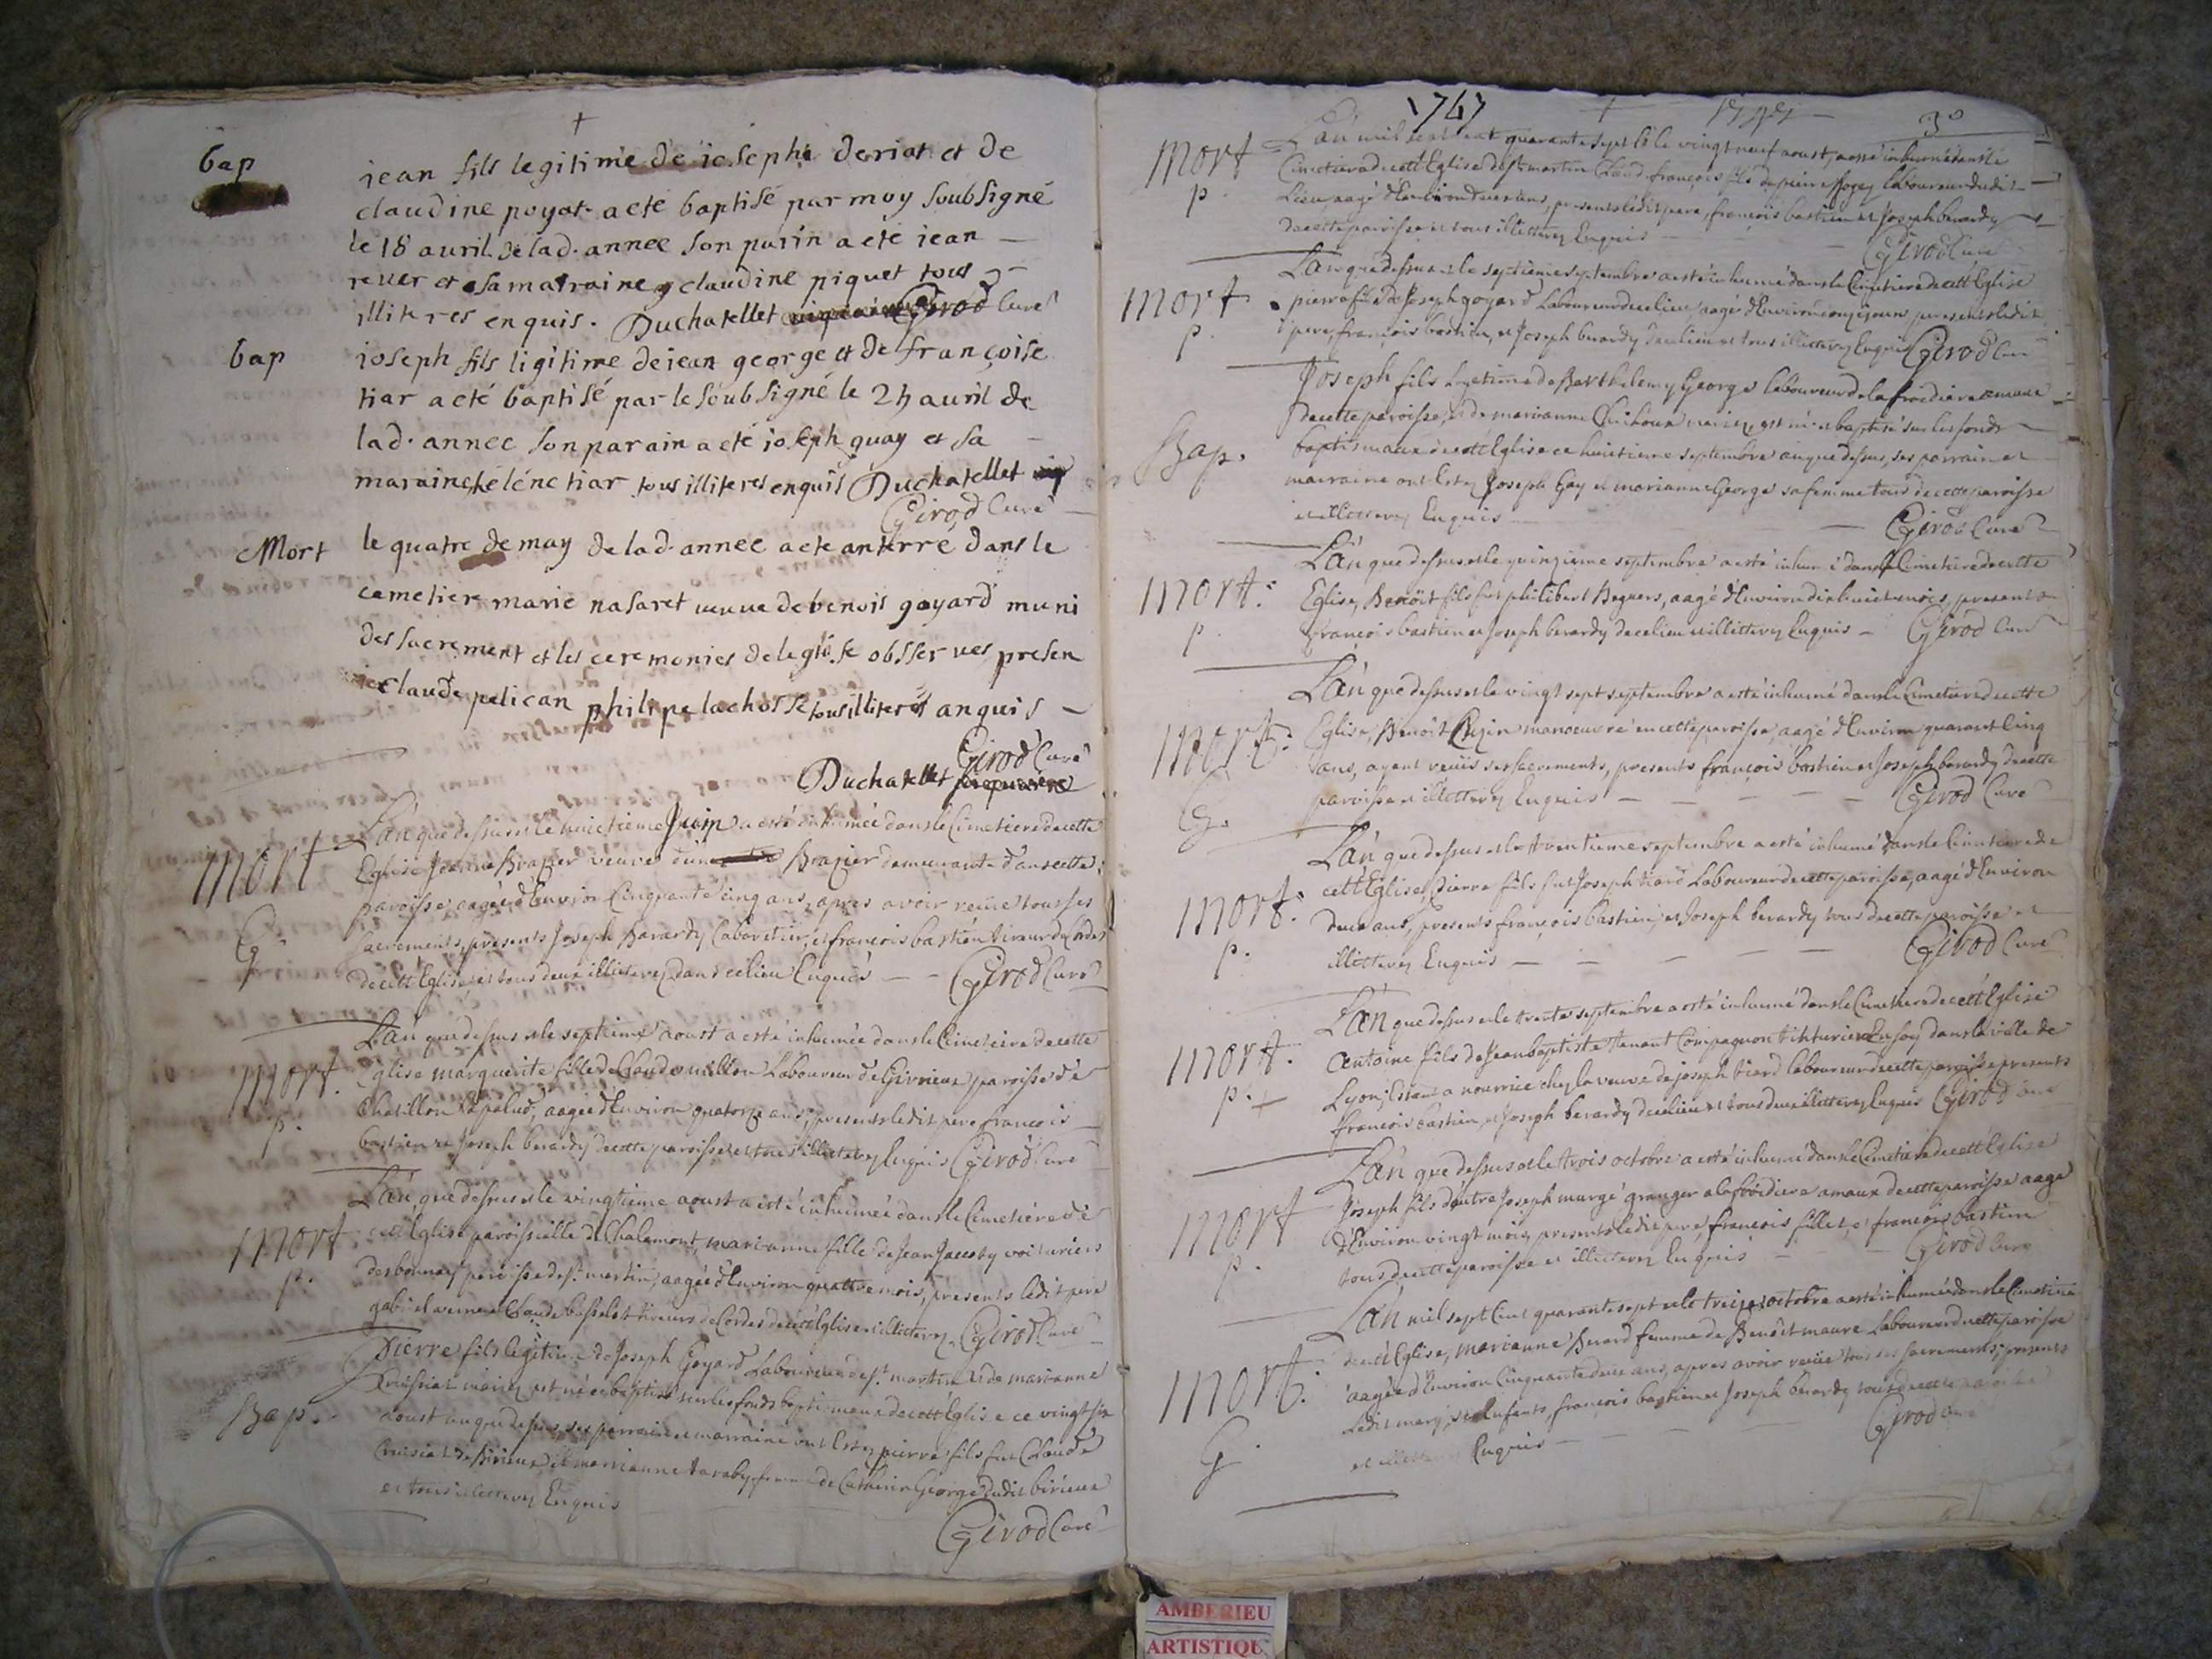 bap
jean fils legitime de josephe deriat et de
claudine poyat a eté baptisé par moy soubsigné
le 18 auril de lad. annee son parin a eté jean
reuer et sa maraine claudine piquet tous
illiteres enquis. Duchatellet Girod Curé
bap
joseph fils ligitime de jean george et de françoise
tiar a eté baptisé par le soubsigné le 24 auril de
lad. annee son parain a eté joseph quay et sa
maraine heléne tiar tous illiteres enquis Duchatellet
Girod Curé
Mort
le quatre de may de lad. annee a ete anterré dans le
cemetiere marie nasaret ueuue de benois goyard muni
des sacrement et les ceremonies de leglise obsseruees presen
claude pelican philipe lachosse tous illiteres anquis
Girod Curé
Duchatellet
mort
G
L'an que dessus et le huictieme Juin a esté inhumée dans le Cimetiere de cette
Eglise Jeanne Brazier veuve d'un Brazier demeurante dans cette
paroisse, aagée d'Environ Cinquante cinq ans, apres avoir receue tous ses
sacrements, presents Joseph Barardy Cabaretier, et francois bastien tireur de Cordes
de cett Eglise, et tous deux illitterez dans ce lieu Enquis Girod Curé
mort.
p.
L'an que dessus et le septieme aoust a esté inhumée dans le Cimetiere de cette
Eglise marguerite fille de Claude millon Laboureur de Givrieux paroisse de
Chatillon la palud, aagée d'Environ quatorze ans, presents ledit pere francois
bastien et Joseph berardy de cette paroisse et tous illitterez Enquis Girod Curé
mort
p.
L'an que dessus et le vingtieme aoust a esté inhumée dans le Cimetiere de
cett Eglise paroissielle de Chalamont, marianne fille de Jean Jacoby voiturier
des bonnes paroisse de st. martin, aagée d'Environ quattre mois, presents ledit pere
gabriel et Claude tireurs de Cordes de cett Eglise et illitterez Girod Curé
Bap.
Pierre fils legitime de Joseph Goyard Laboureur de st. martin et de marianne
Cruisiat mariez est né et baptisé sur les fonds baptismaux de cett Eglise ce vingt six
aoust an que dessus, ses parrain et marraine ont Estez pierre fils fut Claude
Cruisiat de Birieux, et marianne taraby femme de Catherin George dudit birieux
et tous illitterez Enquis
Girod Curé
1747
30
mort
p.
L'an mil sept cent quarante sept et le vingt neuf aoust, a esté inhumé dans le
Cimetiere de cett Eglise de st. martin Claude françois fils de pierre Laboureur dudit
Lieu, aagé d'Environ deux ans, presents ledit pere, françois bastien et Joseph berardy
de cette paroisse et tous illitterez Enquis
Girod Curé
mort
p.
L'an que dessus et le septieme septembre a esté inhumé dans le Cimetiere de cett Eglise
pierre fils de Joseph goyard Laboureur de ce lieu, aagé d'Environ onze jours presents ledit
pere, françois bastien, et Joseph berardy de ce lieu et tous illitterez Enquis Girod Curé
Bap.
Joseph fils legitime de Barthelemy George laboureur de la froidiere amaux
de cette paroisse, et de marianne mariez, est né et baptisé sur les fonds
baptismaux de cett Eglise ce huictieme septembre an que dessus, ses parrain et
marraine ont Estez Joseph Gay et marianne George sa femme tous de cette paroisse
et illitterez Enquis
Girod Curé
mort.
p.
L'an que dessus et le quinzieme septembre a esté inhumé dans le Cimetiere de cette
Eglise, Benoit fils fut philibert Beguers, aagé d'Environ dix huict mois, presents
francois bastien et Joseph berardy de ce lieu et illitterez Enquis Girod Curé
mort.
G.
L'an que dessus et le vingt sept septembre a esté inhumé dans le Cimetiere de cette
Eglise, Benoit manoeuvre en cette paroisse, aagé d'Environ quarante Cinq
ans, ayant receüs ses sacrements, presents françois bastien et Joseph berardy de cette
paroisse et illitterez Enquis Girod Curé
mort.
p.
L'an que dessus et le trentieme septembre a esté inhumé dans le Cimetiere de
cett Eglise, Pierre fils fut Joseph tiard Laboureur de cette paroisse, aagé d'Environ
deux ans, presents françois bastien et Joseph berardy tous de cette paroisse et
illitterez Enquis Girod Curé
mort.
p.
L'an que dessus et le trente septembre a esté inhumé dans le Cimetiere de cett Eglise
Antoine fils de Jean baptiste tenant Compagnon teinturier En soy dans la ville de
Lyon, Estant a nourrice chez la veuve de joseph tiard laboureur de cette paroisse presents
francois bastien, et Joseph berardy de ce lieu et tous deux illitterez Enquis Girod Curé
mort
p.
L'an que dessus et le trois octobre a esté inhumé dans le Cimetiere de cett Eglise
Joseph fils d'autre Joseph murge granger a la froidiere amaux de cette paroisse aagé
d'Environ vingt mois, presents ledit pere, francois fillet, et francois bastien
tous de cette paroisse et illitterez Enquis Girod Curé
mort.
G
L'an mil sept Cent quarante sept et le treize octobre a esté inhumée dans le Cimetiere
de cett Eglise, marianne Berard femme de Benoit maure Laboureur de cette paroisse
aagée d'Environ Cinquante deux ans, apres avoir receüe tous ses sacrements, presents
ledit mary, ses Enfants, françois bastien et Joseph berardy tous de cette paroisse
et illitterez Enquis Girod Curé
AMBERIEU
ARTISTIQU